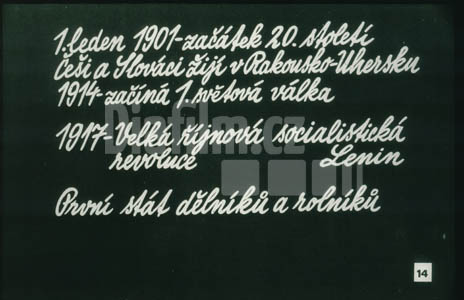 1. leden 1901-začátek 20. století
Češi a Slováci žijí v Rakousko-Uhersku
1914-začíná 1. světová válka
1917-Velká říjnová socialistická
revoluce Lenin
První stát dělníků a rolníků
Diafilm.cz
14